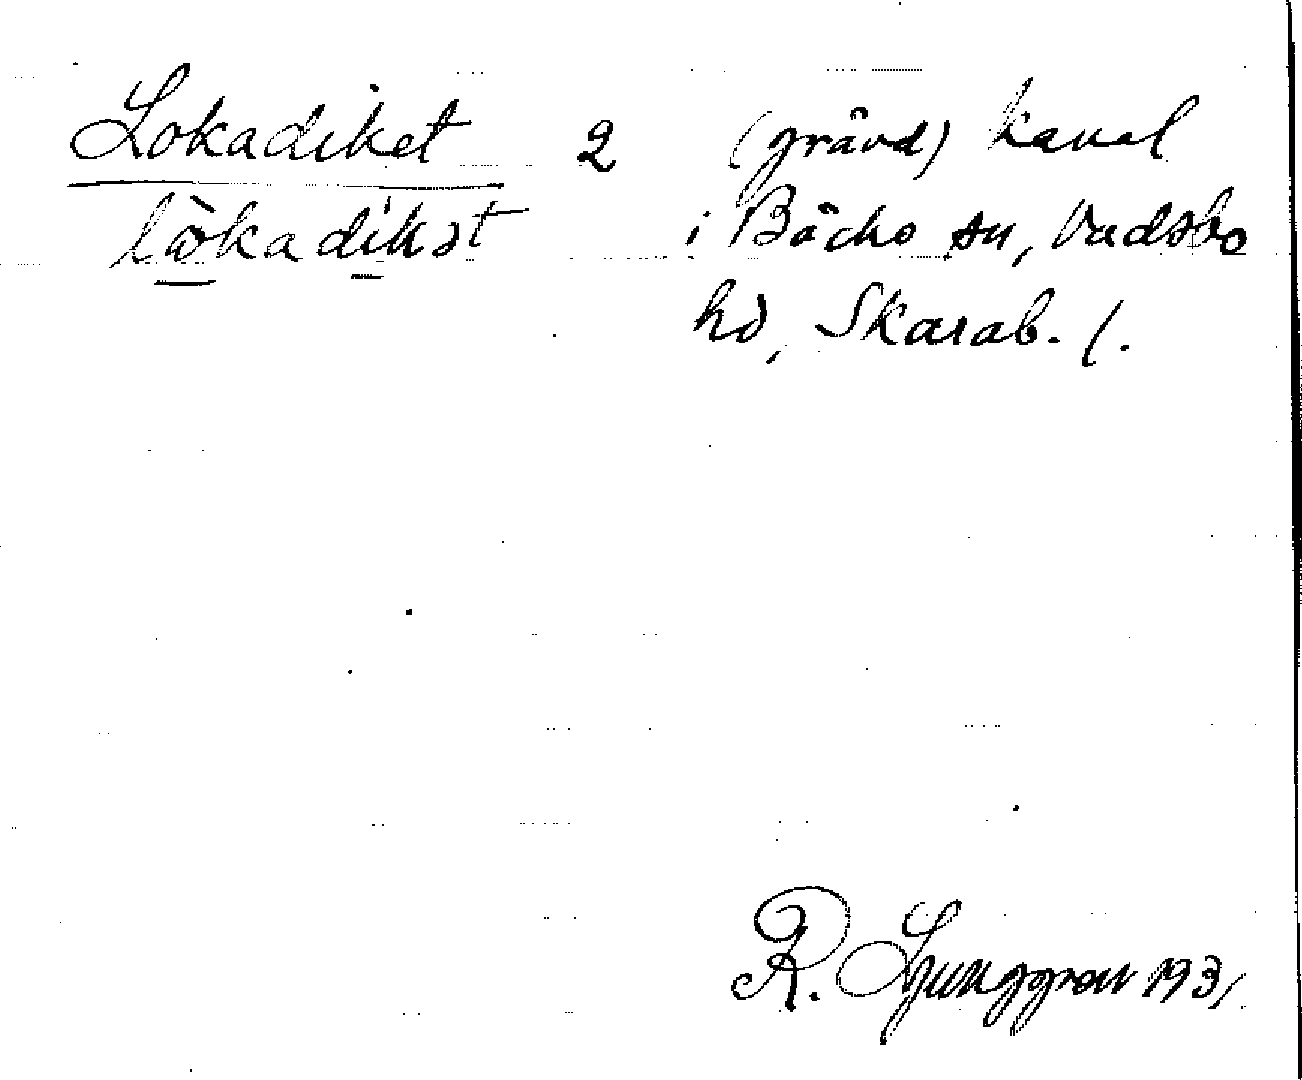 Lokadiket 2 (grävd) kanal
lòkadíkət i Bäcks sn, Vadsbo
hd, Skarab. l.
R. Ljunggren 1931